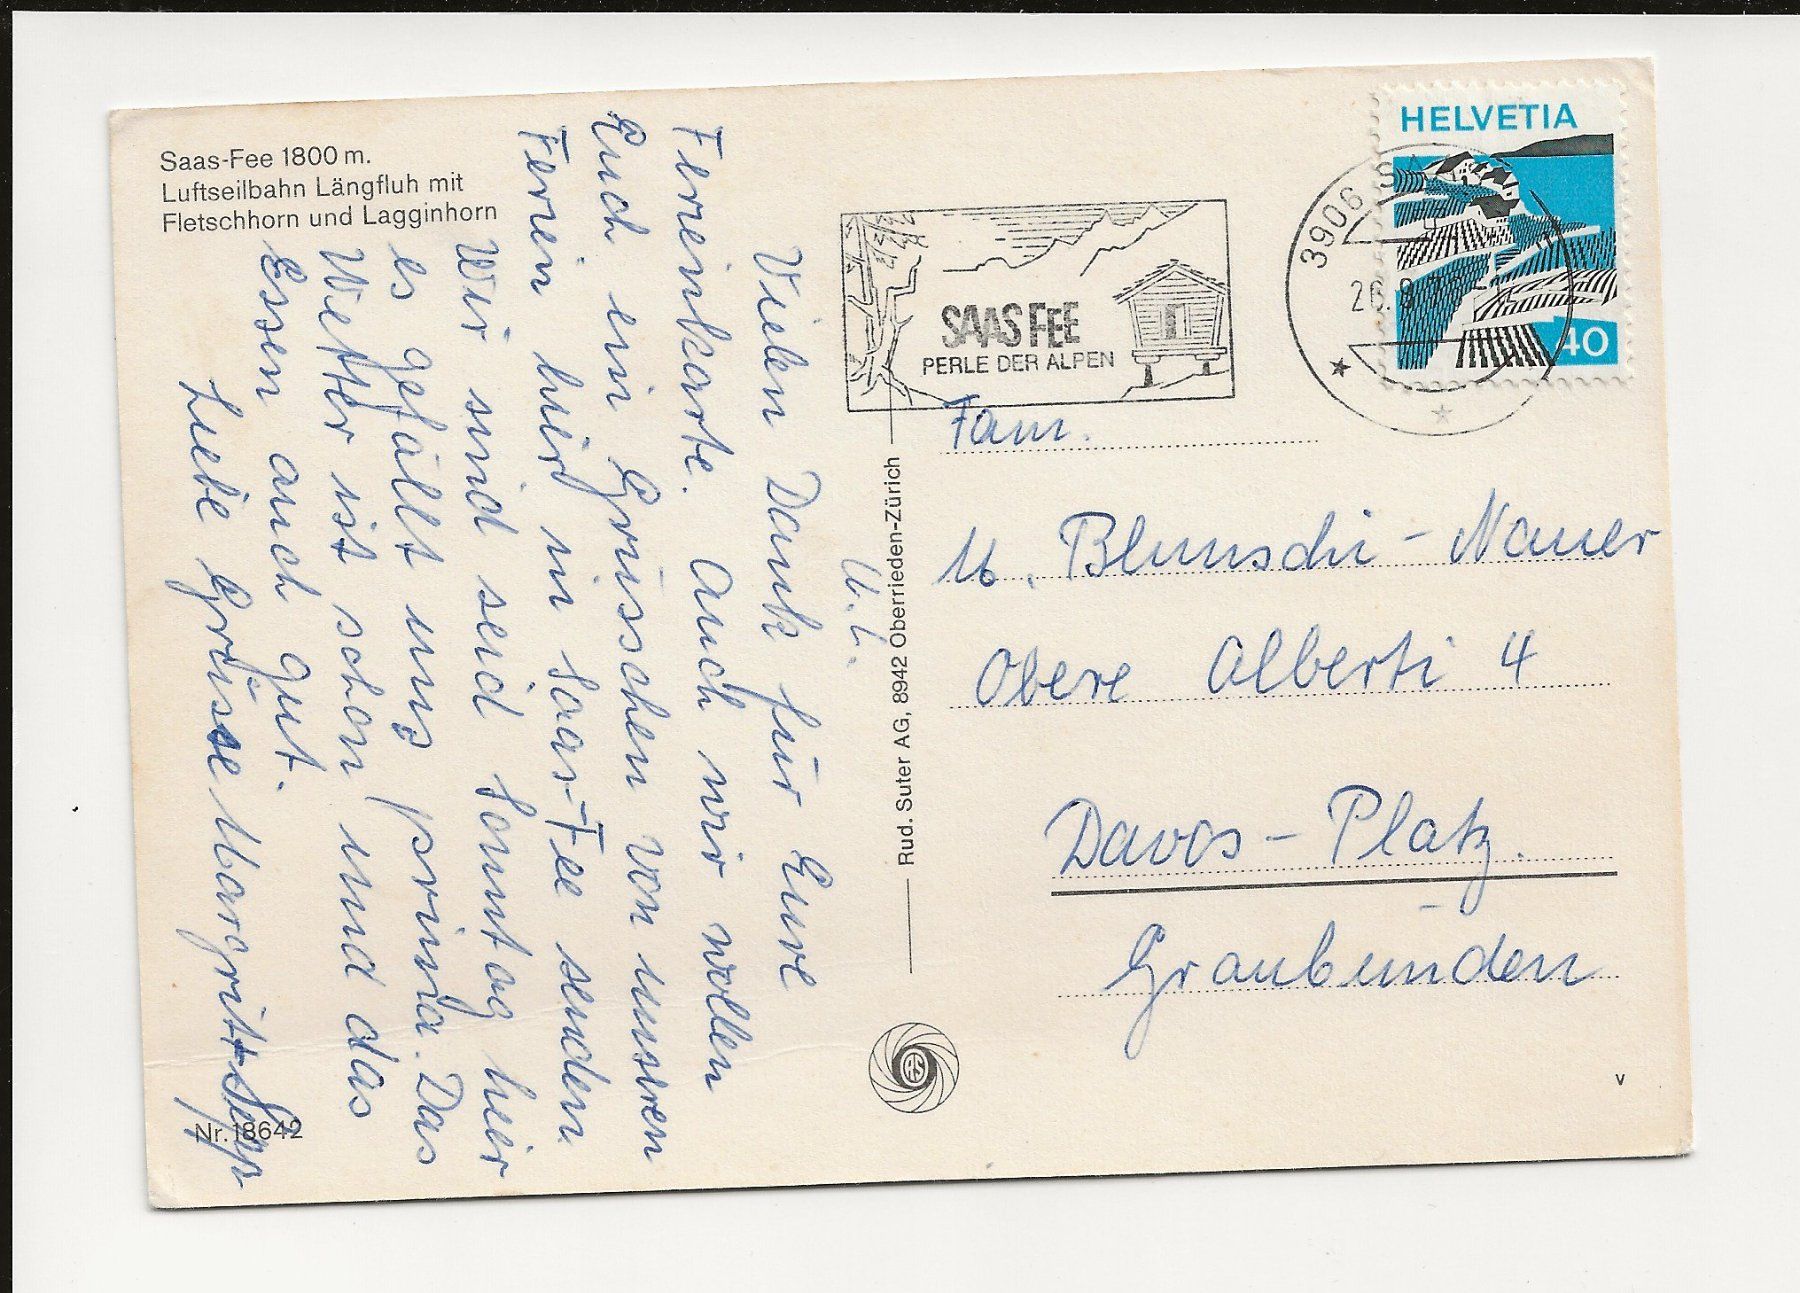 Saas-Fee 1800 m.
Luftseilbahn Längfluh mit
Fletschhorn und Lagginhorn
U. L.
Vielen Dank für Eure
Ferienkarte. Auch wir wollen
Euch ein Grüsschen von unseren
Ferien hier in Saas-Fee senden.
Wir sind seid Sonntag hier
es gefällt uns prima. Das
Wetter ist schon und das
Essen auch gut.
Liebe Grüsse Margrit + Sepp
Nr. 18642
Rud. Suter AG, 8942 Oberrieden-Zürich
RS
SAAS FEE
PERLE DER ALPEN
3906
HELVETIA
40
Fam.
M. Blunschi - Nauer
Obere Alberti 4
Davos - Platz.
Graubünden
v